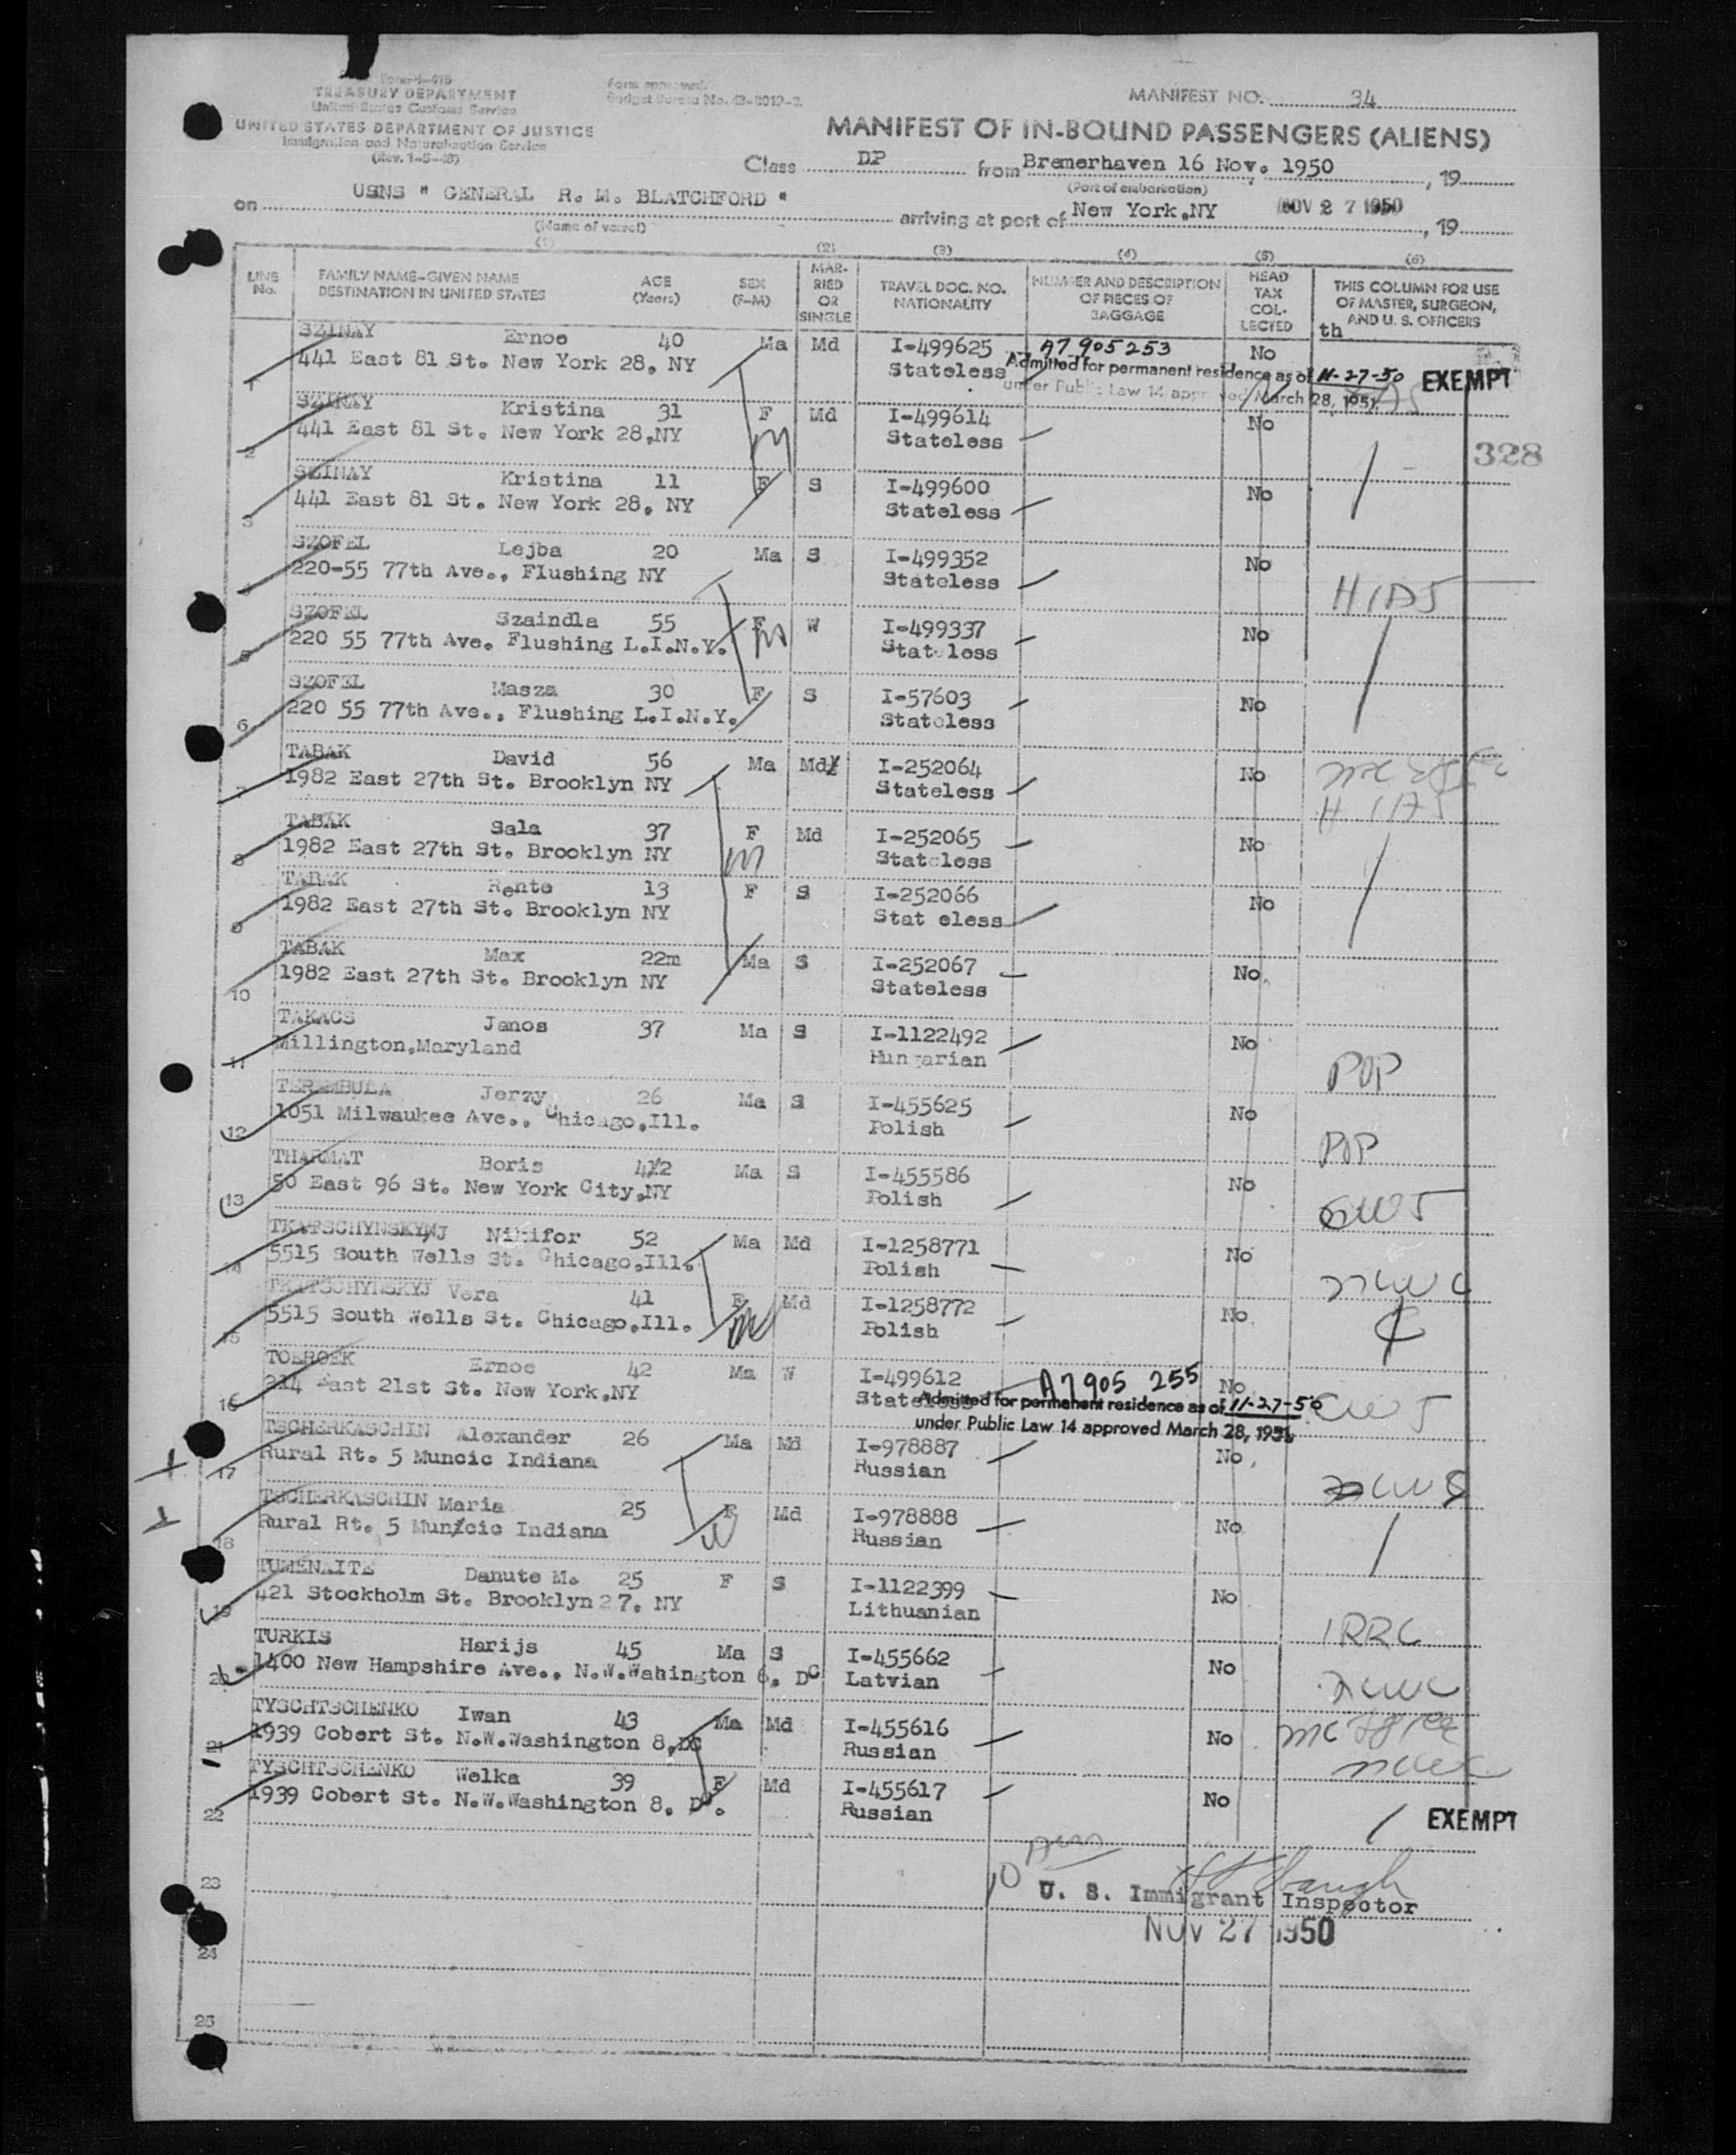 Form I-415
TREASURY DEPARTMENT
United States Customs Service
UNITED STATES DEPARTMENT OF JUSTICE
Immigration and Naturalization Service
(Rev. 1-5-48)
Form approved.
Budget Bureau No. 43-R019-2.
MANIFEST NO. 34
MANIFEST OF IN-BOUND PASSENGERS (ALIENS)
Class DP from Bremerhaven 16 Nov. 1950, 19
(Port of embarkation)
on USNS " GENERAL R. M. BLATCHFORD " arriving at port of New York,NY NOV 27 1950, 19
(Name of vessel)
(1) (2) (3) (4) (5) (6)
LINE No. FAMILY NAME-GIVEN NAME DESTINATION IN UNITED STATES AGE (Years) SEX (F-M) MARRIED OR SINGLE TRAVEL DOC. NO. NATIONALITY NUMBER AND DESCRIPTION OF PIECES OF BAGGAGE HEAD TAX COLLECTED THIS COLUMN FOR USE OF MASTER, SURGEON, AND U. S. OFFICERS
th
1 SZINAY Ernoe 40 Ma Md I-499625 A7 905 253 No
441 East 81 St. New York 28, NY Stateless Admitted for permanent residence as of 11-27-50 EXEMPT
under Public Law 14 approved March 28, 1951
2 SZINAY Kristina 31 F Md I-499614 No
441 East 81 St. New York 28,NY Stateless
328
3 SZINAY Kristina 11 F S I-499600 No
441 East 81 St. New York 28, NY Stateless
4 SZOFEL Lejba 20 Ma S I-499352 No
220-55 77th Ave., Flushing NY Stateless HIAS
5 SZOFEL Szaindla 55 F W I-499337 No
220 55 77th Ave. Flushing L.I.N.Y. Stateless
6 SZOFEL Masza 30 F S I-57603 No
220 55 77th Ave., Flushing L.I.N.Y. Stateless
7 TABAK David 56 Ma Md I-252064 No
1982 East 27th St. Brooklyn NY Stateless HIAS
8 TABAK Sala 37 F Md I-252065 No
1982 East 27th St. Brooklyn NY Stateless
9 TABAK Rente 13 F S I-252066 No
1982 East 27th St. Brooklyn NY Stat eless
10 TABAK Max 22m Ma S I-252067 No
1982 East 27th St. Brooklyn NY Stateless
11 TAKACS Janos 37 Ma S I-1122492 No
Millington,Maryland Hungarian
12 TEREMBULA Jerzy 26 Ma S I-455625 No
1051 Milwaukee Ave., Chicago,Ill. Polish
13 THARMAT Boris 42 Ma S I-455586 No
50 East 96 St. New York City,NY Polish
14 Nikifor 52 Ma Md I-1258771 No
5515 South Wells St. Chicago,Ill. Polish
15 Vera 41 F Md I-1258772 No
5515 South Wells St. Chicago,Ill. Polish
16 TOEROEK Ernoe 42 Ma W I-499612 A7 905 255 No
214 East 21st St. New York,NY Stateless Admitted for permanent residence as of 11-27-50
under Public Law 14 approved March 28, 1951
17 TSCHERKASCHIN Alexander 26 Ma Md I-978887 No
Rural Rt. 5 Muncic Indiana Russian
18 TSCHERKASCHIN Maria 25 F Md I-978888 No
Rural Rt. 5 Muncic Indiana Russian
19 TUMENAITE Danute M. 25 F S I-1122399 No
421 Stockholm St. Brooklyn 27, NY Lithuanian IRRC
20 TURKIS Harijs 45 Ma S I-455662 No
1400 New Hampshire Ave., N.W.Wahington 6, DC Latvian
21 TYSCHTSCHENKO Iwan 43 Ma Md I-455616 No
1939 Cobert St. N.W.Washington 8,DC Russian
22 TYSCHTSCHENKO Welka 39 F Md I-455617 No
1939 Cobert St. N.W.Washington 8. DC. Russian EXEMPT
23
U. S. Immigrant Inspector
NOV 27 1950
24
25